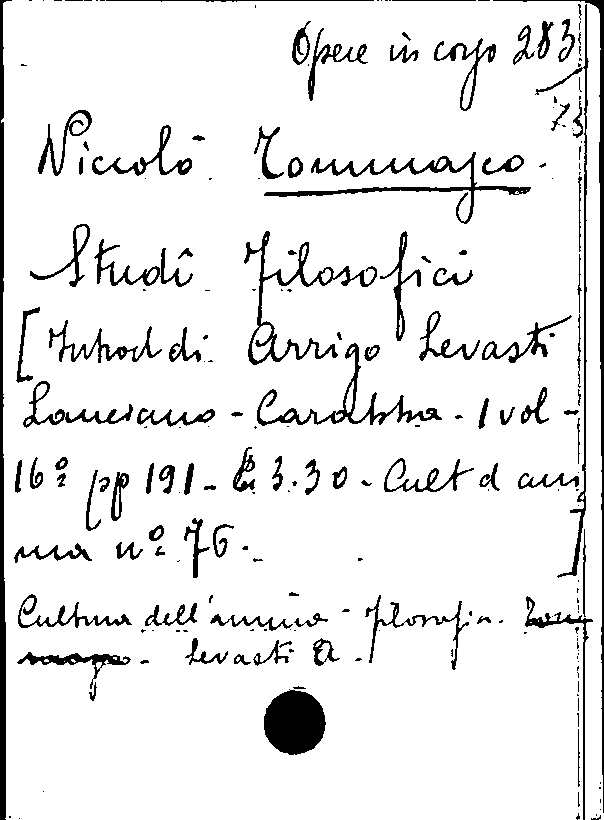 Opere in corso 283
73
Niccolò Tommaseo.
Studî Filosofici
[Introd di Arrigo Levasti
Lanciano - Carabba - 1 vol -
16º pp 191 - £ 3.30 - Cult d ani
ma nº 76.]
Cultura dell'anima - filosofia. Tom
maseo - Levasti A.